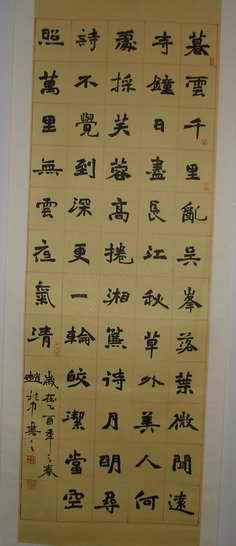 暮雲千里亂吳峯落葉微聞遠
寺鐘日盡長江秋草外美人何
處採芙蓉高捲湘簾待月明尋
詩不覺到深更一輪皎潔當空
照萬里無雲夜氣清
歲在乙酉年之春